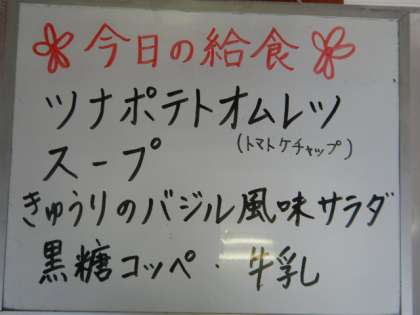 今日の給食
ツナポテトオムレツ
(トマトケチャップ)
スープ
きゅうりのバジル風味サラダ
黒糖コッペ・牛乳